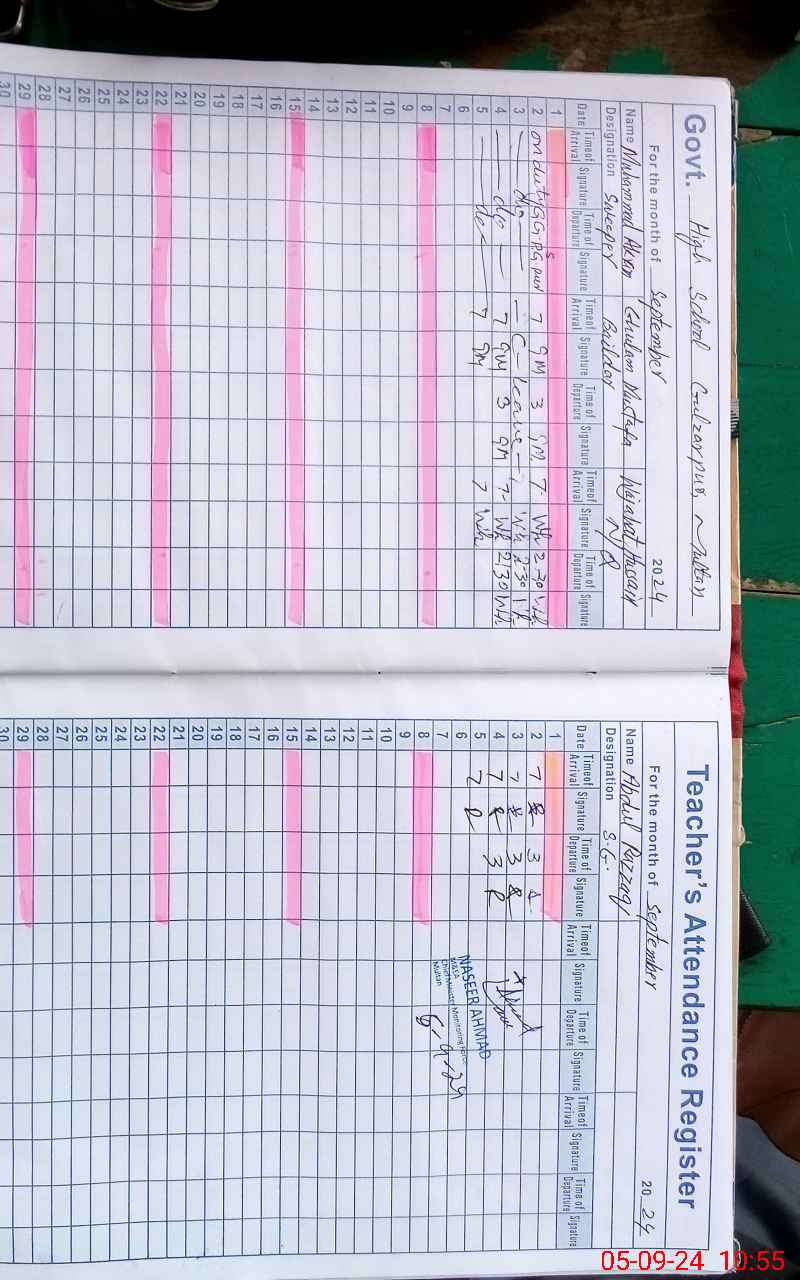 Govt. High School Gulzarpur, Multan
For the month of September 2024
Name Muhammad Akram Ghulam Mustafa Wajahat Hussain
Designation Sweeper Baildar N/Q
Date Time of Arrival Signature Time of Departure Signature Time of Arrival Signature Time of Departure Signature Time of Arrival Signature Time of Departure Signature
1
2 on duty G.G.P.S 7 GM 3 GM 7 Wh 2-30 Wh
3 — do — — C — leave — 7 Wh 2-30 Wh
4 — do — 7 GM 3 GM 7 Wh 2:30 Wh
5 — do — 7 GM 7 Wh
6
7
8
9
10
11
12
13
14
15
16
17
18
19
20
21
22
23
24
25
26
27
28
29
30
Teacher's Attendance Register
For the month of September 2024
Name Abdul Razzaq
Designation S.G.
Date Time of Arrival Signature Time of Departure Signature Time of Arrival Signature Time of Departure Signature Time of Arrival Signature Time of Departure Signature
1
2 7 3
3 7 3
4 7 3
5 7
6
7
8
9
10
11
12
13
14
15
16
17
18
19
20
21
22
23
24
25
26
27
28
29
30
NASEER AHMAD
M&EA
Chief Minister Monitoring Force
Multan
05-09-24 10:55